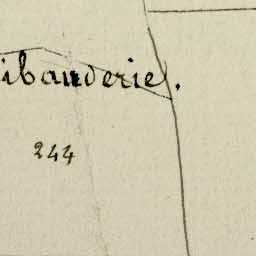 ibauderie.
244